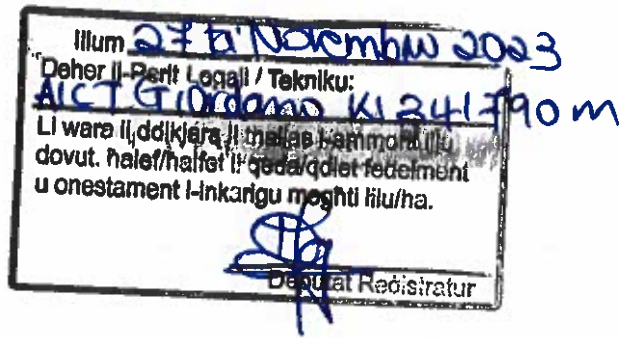 Illum 27 ta' Novembru 2023
Deher il-Perit Legali / Tekniku:
AICT Giordano KI 341790M
Li wara li ddikjara li tħallas l-ammont lilu
dovut. ħalef/ħalfet li qeda/qdiet fedelment
u onestament l-inkarigu mogħti lilu/ha.
Deputat Reġistratur